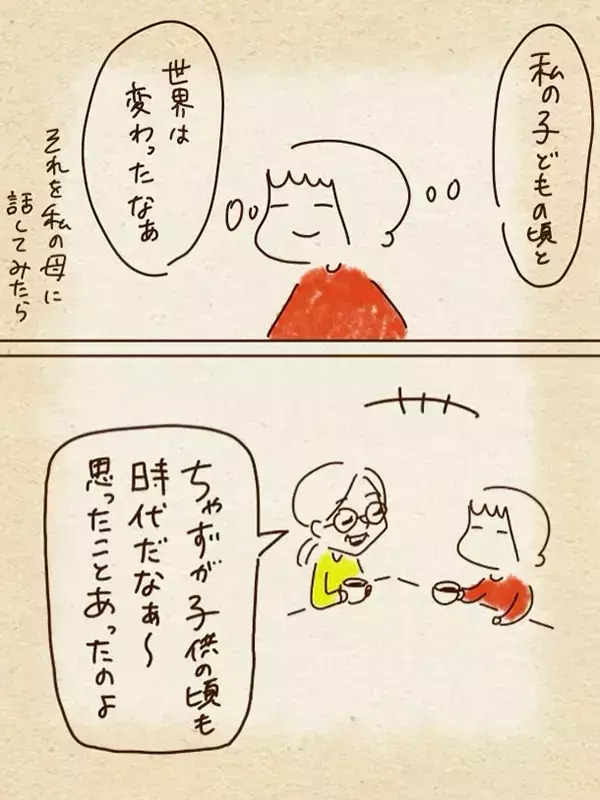 私の子どもの頃と
世界は
変わったなあ
それを私の母に
話してみたら
ちゃずが子供の頃も
時代だなぁ〜
思ったことあったのよ